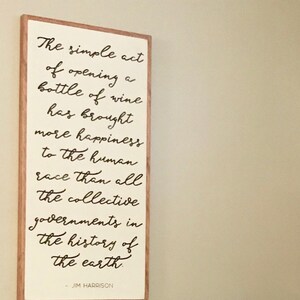 The simple act
of opening a
bottle of wine
has brought
more happiness
to the human
race than all
the collective
governments in
the history of
the earth.
- JIM HARRISON